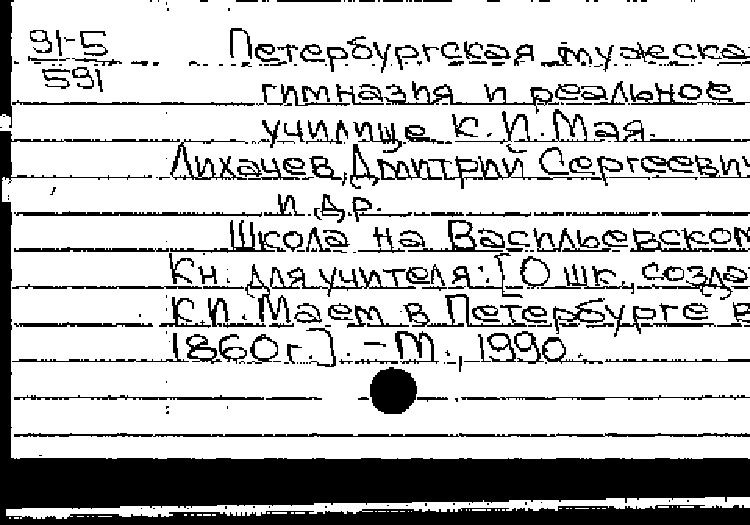 91-5
591
Петербургская мужска
гимназия и реальное
училище К.И. Мая.
Лихачев, Дмитрий Сергеевич
и др.
Школа на Васильевском
Кн. для учителя: [О шк., созда
К.И. Маем в Петербурге в
1860 г.]. - М., 1990.